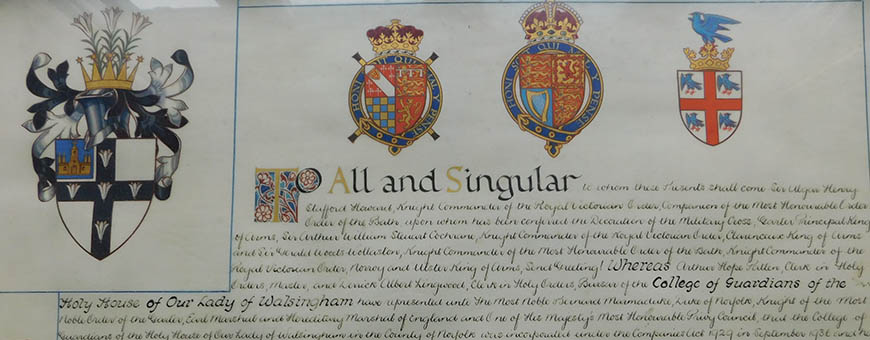 HONI SOIT QUI MAL Y PENSE
HONI SOIT QUI MAL Y PENSE
To All and Singular to whom these Presents shall come Sir Algar Henry
Stafford Howard, Knight Commander of the Royal Victorian Order, Companion of the Most Honourable Order
Order of the Bath upon whom has been conferred the Decoration of the Military Cross, Garter Principal King
of Arms, Sir Arthur William Steuart Cochrane, Knight Commander of the Royal Victorian Order, Clarenceux King of Arms
and Sir Gerald Woods Wollaston, Knight Commander of the Most Honourable Order of the Bath, Knight Commander of the
Royal Victorian Order, Norroy and Ulster King of Arms, Send Greeting! Whereas Arthur Hope Patten, Clerk in Holy
Orders, Master, and Derrick Albert Lingwood, Clerk in Holy Orders, Bursar of the College of Guardians of the
Holy House of Our Lady of Walsingham have represented unto The Most Noble Bernard Marmaduke, Duke of Norfolk, Knight of the Most
Noble Order of the Garter, Earl Marshal and Hereditary Marshal of England and One of His Majesty's Most Honourable Privy Council, that the College of
Guardians of the Holy House of Our Lady of Walsingham in the County of Norfolk was incorporated under the Companies Act 1929 in September 1931 and